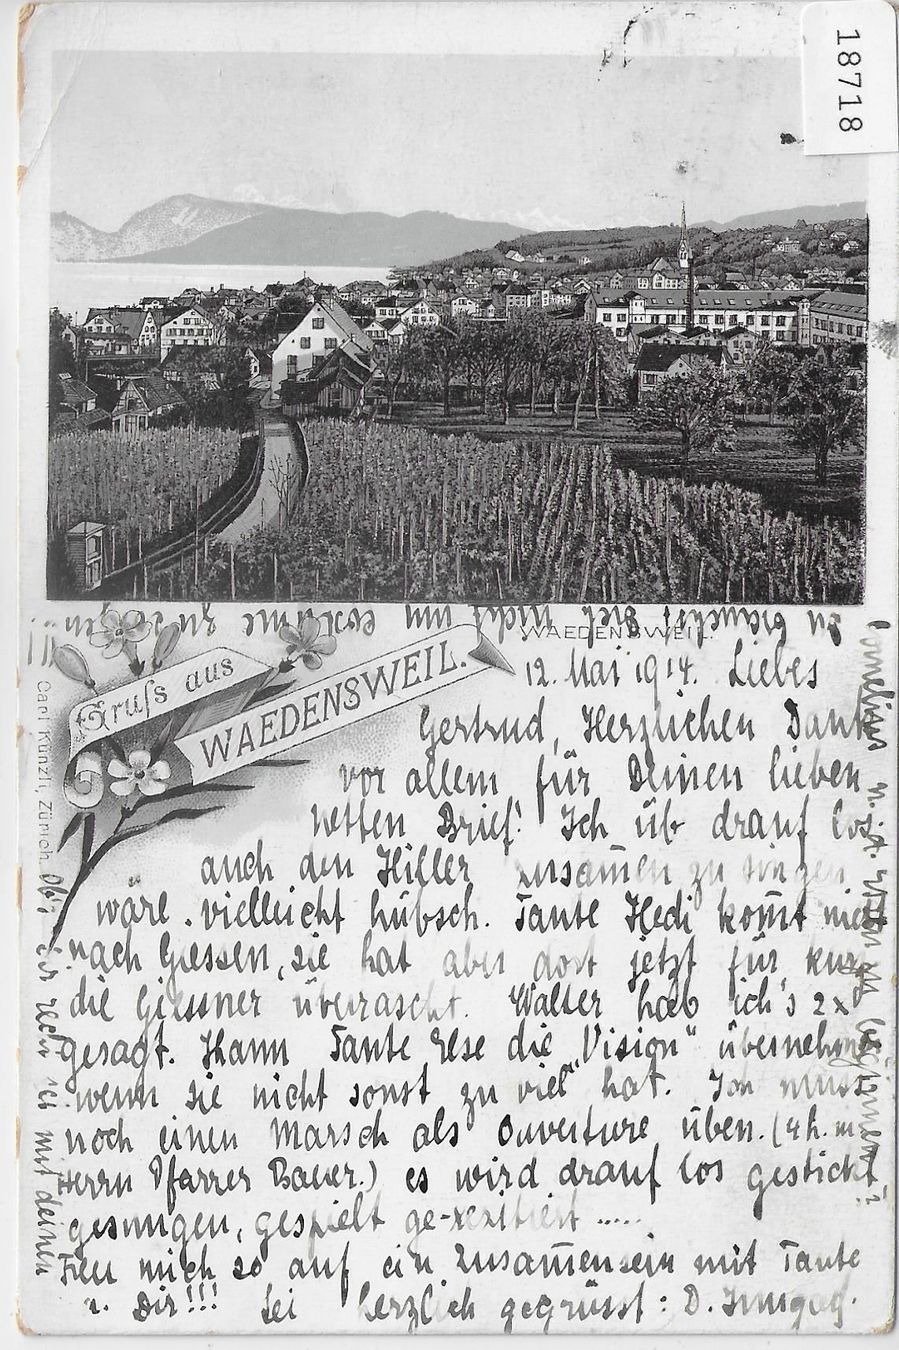 18718
WAEDENSWEIL.
Gruſs aus
WAEDENSWEIL.
Carl Künzli, Zürich.
zu brauchst Dich nicht um costüme zu
12. Mai 1914. Liebes
Gertrud, Herzlichen Dank
vor allem für Deinen lieben
netten Brief! Ich üb drauf los.
auch den Hiller zusam̄en zu singen
wäre vielleicht hübsch. Tante Hedi kom̄t nicht
nach Giessen, sie hat aber dort jetzt für kurz
die Giessner überrascht. Walter hab ich's 2x
gesagt. Kann Tante Else die „Vision" übernehmen
wenn sie nicht sonst zu viel hat. Ich muss
noch einen Marsch als Ouverture üben. (4 h. m.
Herrn Pfarrer Bauer.) es wird drauf los gestickt,
gesungen, gespielt ge-rezitiert .....
Freu mich so auf ein Zusam̄ensein mit Tante
u. Dir!!! Sei herzlich gegrüsst: D.
ich mit deinen
Cornelius u.